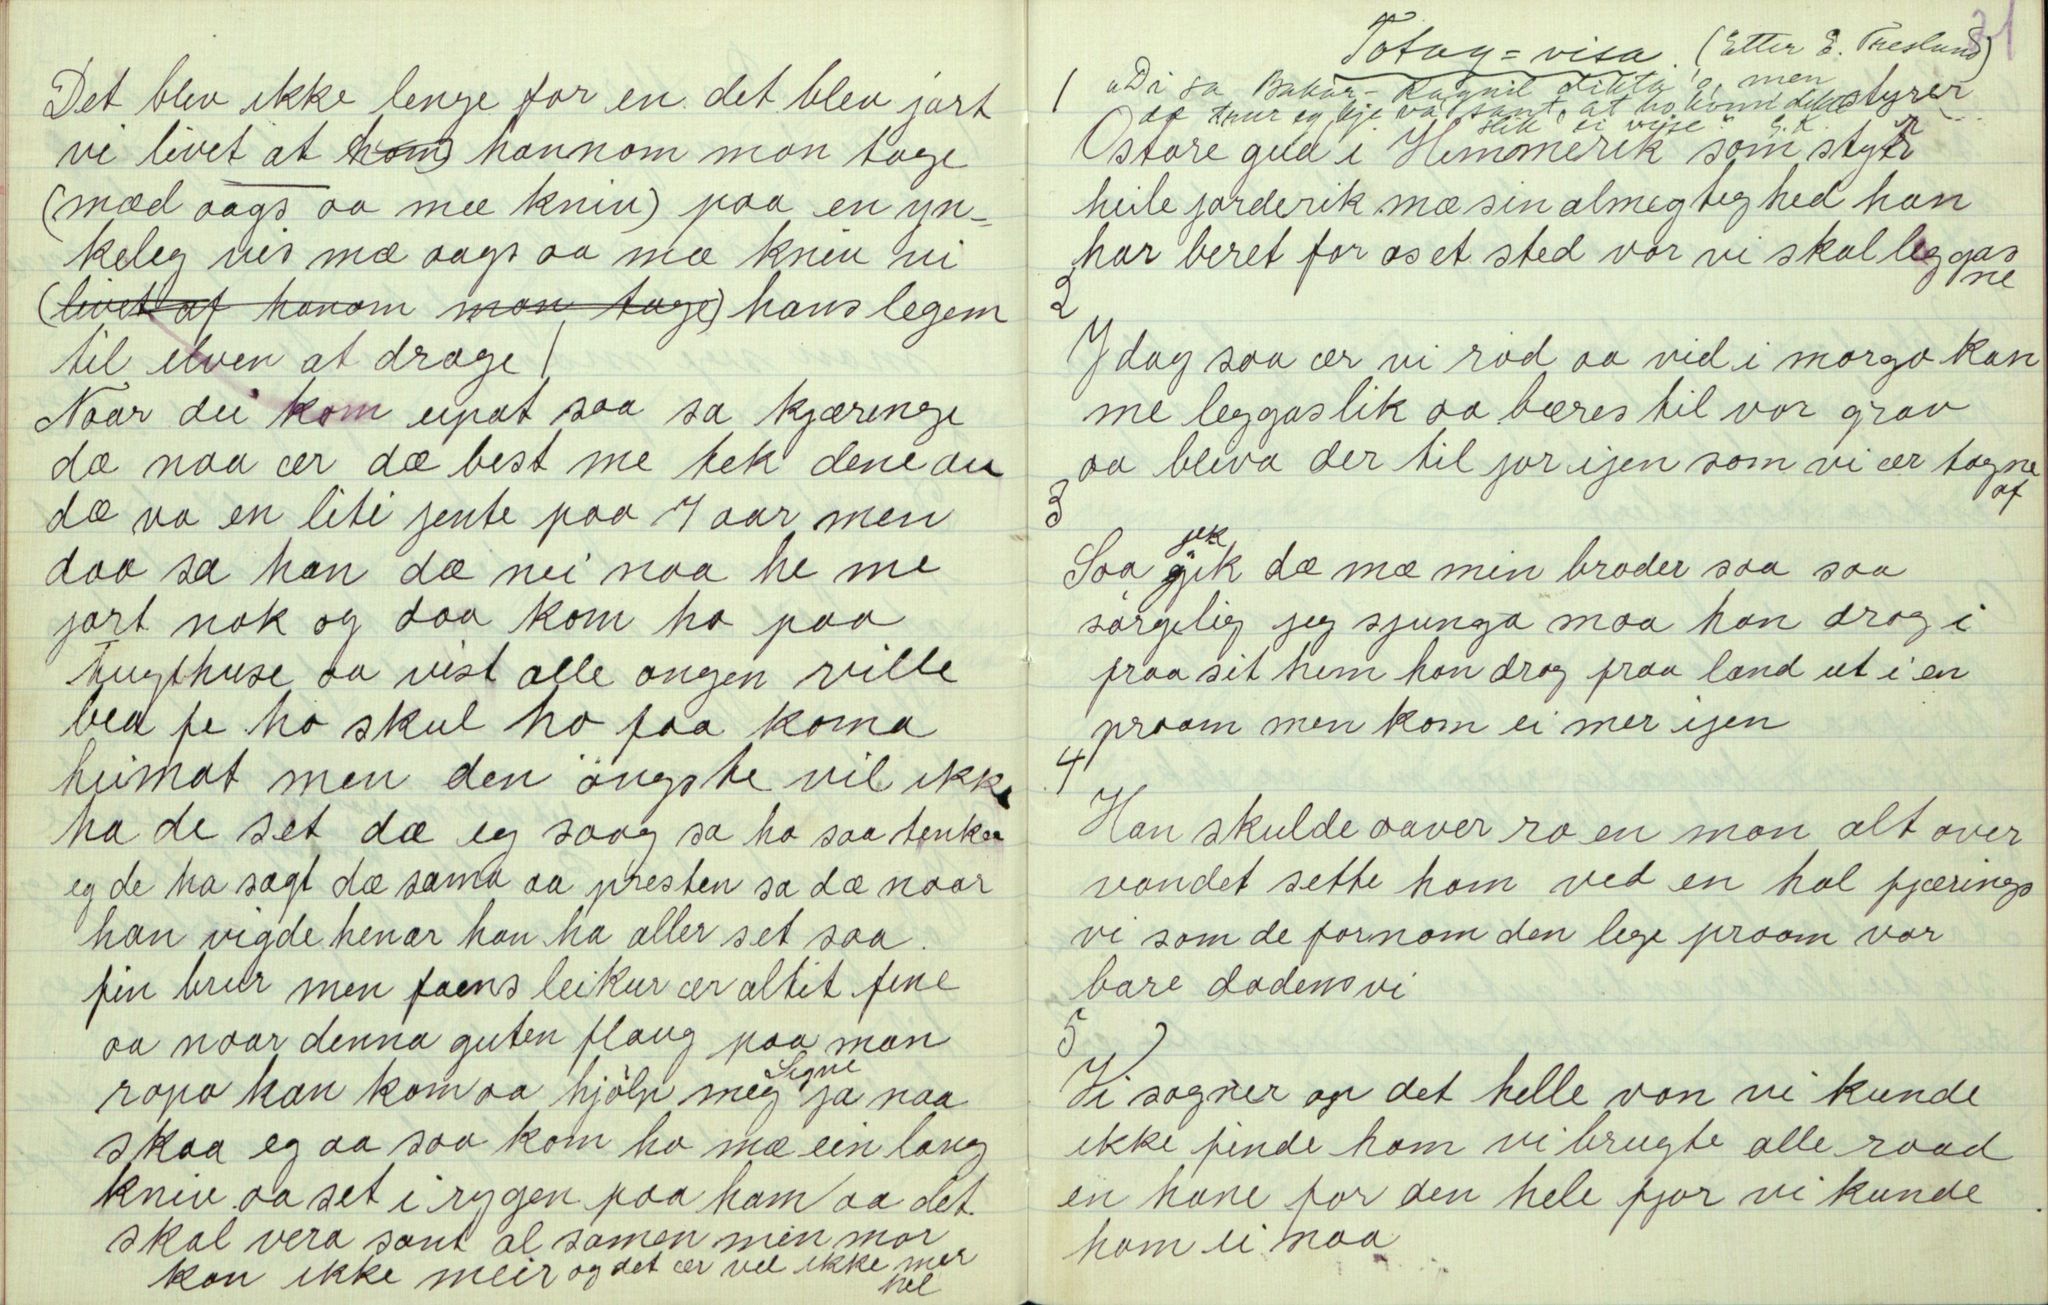 Det blev ikke lenge for en det blev jort
vi livet at hom hannom mon tage
(mæd aags aa mæ kniv) paa en yn-
keleg vis mæ aags aa mæ kniv vi
(livet af hanom mon tage) hans legem
til elven at drage /
Naar dei kom eipat saa sa kjærenge
dæ naa ær dæ best me tek dene au
dæ va en liti jente paa 7 aar men
daa sa han dæ nei naa he me
jort nok og daa kom ho paa
tugthuse aa vist alle ongen ville
bea fe ho skul ho faa koma
heimat men den öngste vil ikke
ha de set dæ eg saag sa ho saa tenker
eg de ha sagt dæ sama aa presten sa dæ naar
han vigde henar han ha aller set saa
fin brur men faens leikur ær altit fine
aa naar denna guten flaug paa man
ropa han kom aa hjölp meg Signe ja naa
skaa eg aa saa kom ho mæ ein lang
kniv aa set i rygen paa ham aa det
skal vera sant al samen min mor
kan ikke meir og det ær vel ikke mer
hel
31
Totag=visa (Etter E. Treslund)
1 "Di sa Bakar-Ragnil dikta 'a, men
eg kje va sant, at ho
slik ei vise" E.K.
styrer
O store gud i Himmerik som styr
heile jorderik mæ sin almegteghed han
har beret for os et sted vor vi skal leggas
ne
2
I dag saa ær vi rod aa vid i morgo kan
me leggas lik aa bæres til vor grav
aa bleva der til jor ijen som vi ær tagne
af
3
Saa gjik jek dæ mæ min broder saa saa
sørgelig jeg sjunga maa han drog i
fraa sit hem han drog fraa land ut i en
praam men kom ei mer ijen
4
Han skulde aaver ro en man alt over
vandet sette ham ved en hal fjærings
vi som de fornom den lege praam var
bare dodens vi
5
Vi sogner op det helle van vi kunde
ikke finde ham vi brugte alle raad
en hane for den hele fjor vi kunde
ham ei naa